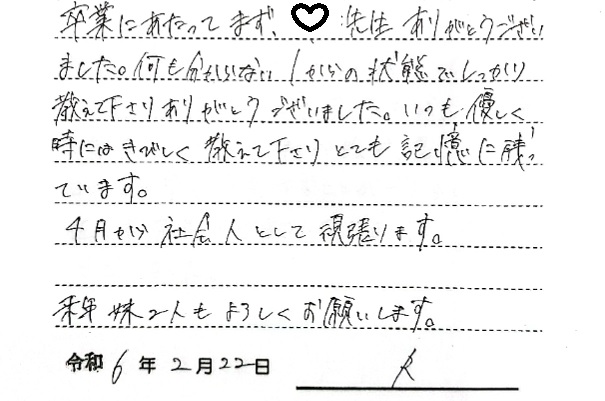 卒業にあたってまず、♡ 先生 ありがとうござい
ました。何も分からない1からの状態でしっかり
教えて下さりありがとうございました。いつも優しく
時にはきびしく教えて下さりとても記憶に残っ
ています。
4月から社会人として頑張ります。
来年 妹2人もよろしくお願いします。
令和 6 年 2 月 22 日 K